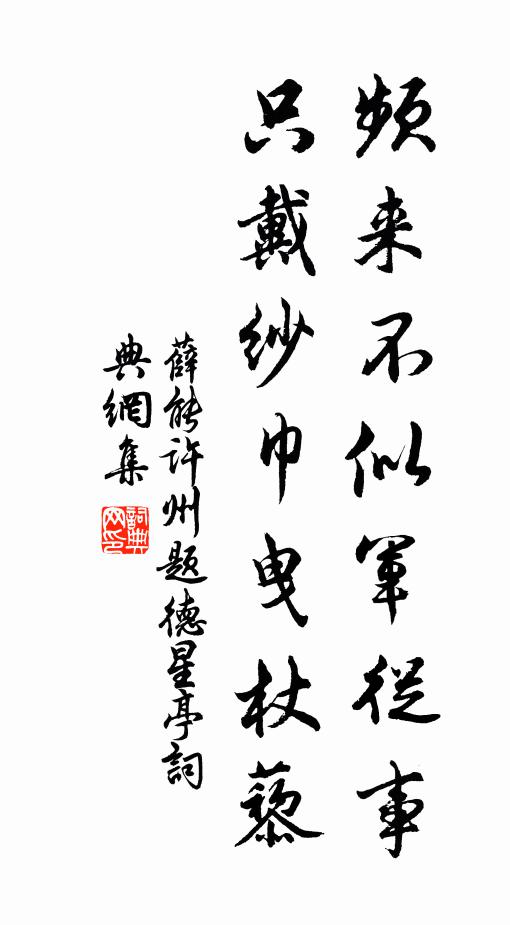 频来不似军从事
只戴纱巾曳杖藜
薛能许州题德星亭词
典網集
詞典网印